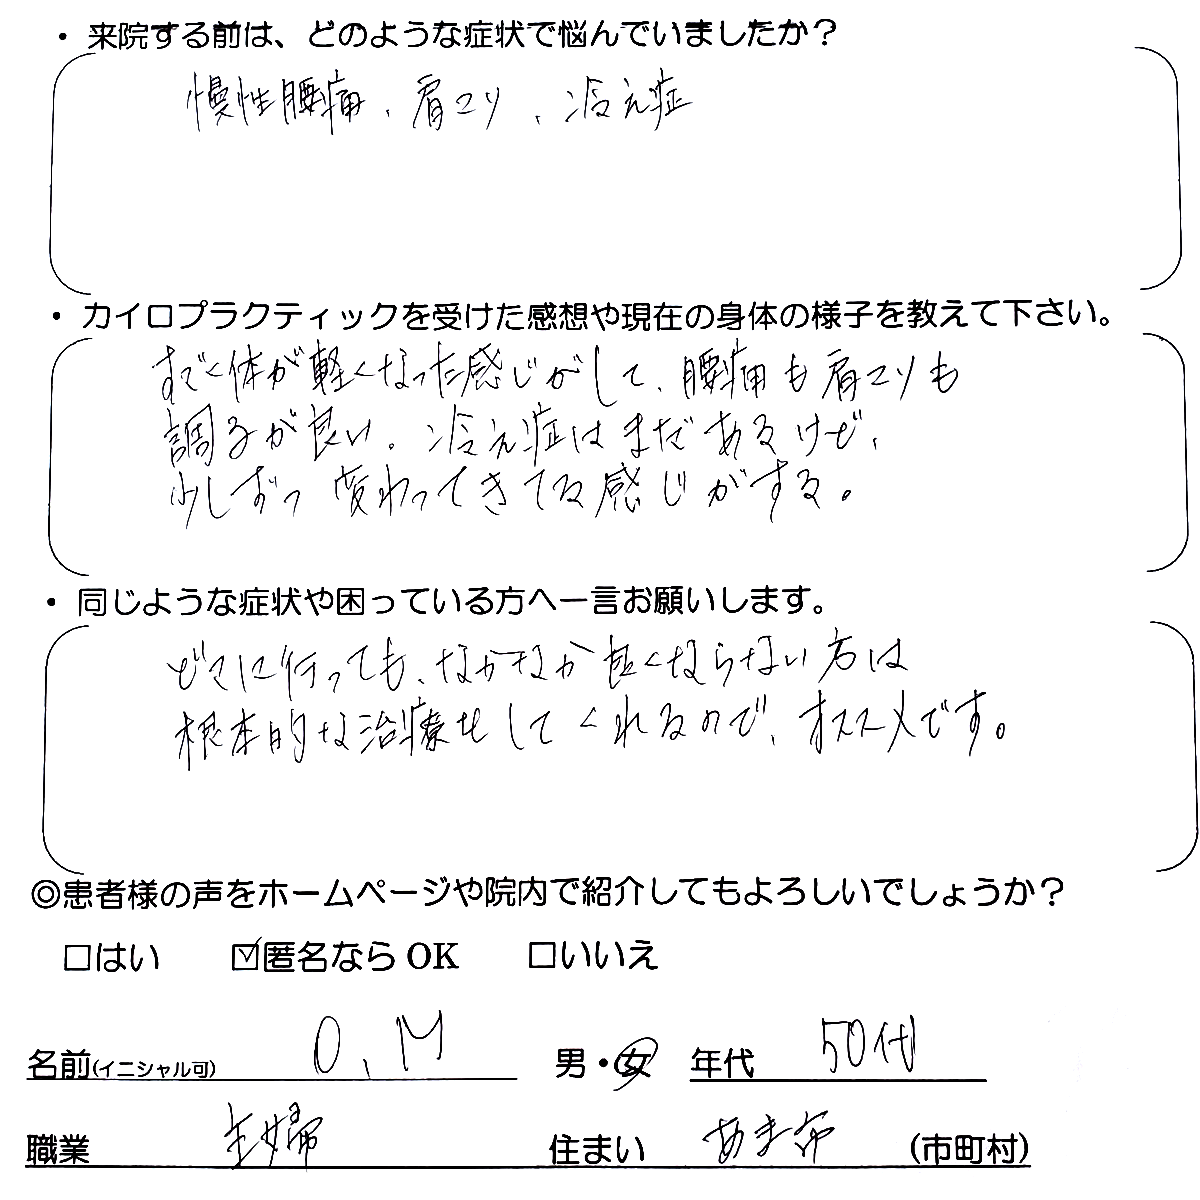 ・来院する前は、どのような症状で悩んでいましたか？
慢性腰痛、肩コリ、冷え症
・カイロプラクティックを受けた感想や現在の身体の様子を教えて下さい。
すごく体が軽くなった感じがして、腰痛も肩コリも
調子が良い。冷え症はまだあるけど、
少しずつ変わってきてる感じがする。
・同じような症状や困っている方へ一言お願いします。
どこに行っても、なかなか良くならない方は
根本的な治療をしてくれるので、オススメです。
◎患者様の声をホームページや院内で紹介してもよろしいでしょうか？
□はい ☑匿名ならOK □いいえ
名前(イニシャル可) O.M 男・女 年代 50代
職業 主婦 住まい あま市 (市町村)